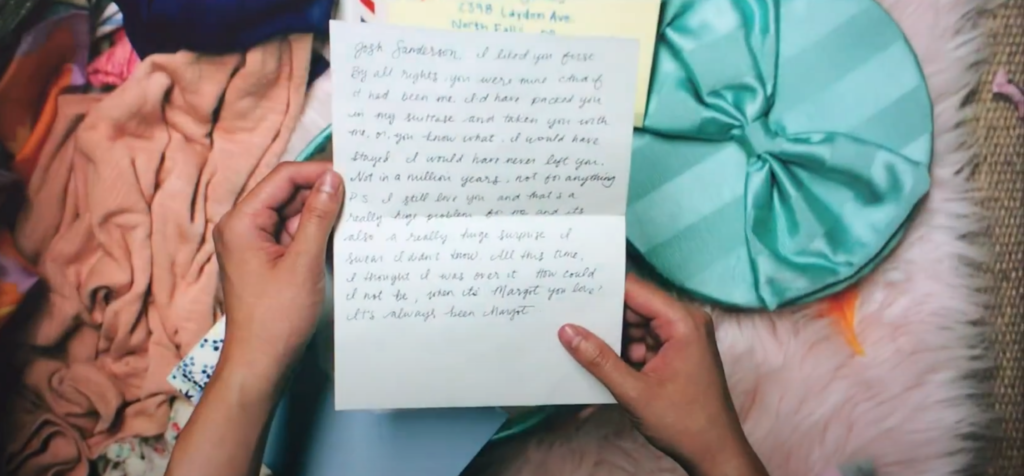 2398 Layden Ave.
North Falls
Josh Sanderson. I liked you first
By all rights, you were mine. And if
it had been me, I'd have packed you
in my suitcase and taken you with
me, or, you know what, I would have
stayed. I would have never left you.
Not in a million years, not for anything
P.S. I still love you and that's a
really huge problem for me and its
also a really huge surprise I
swear I didn't know. All this time,
I thought I was over it. How could
I not be, when it's Margot you love?
It's always been Margot